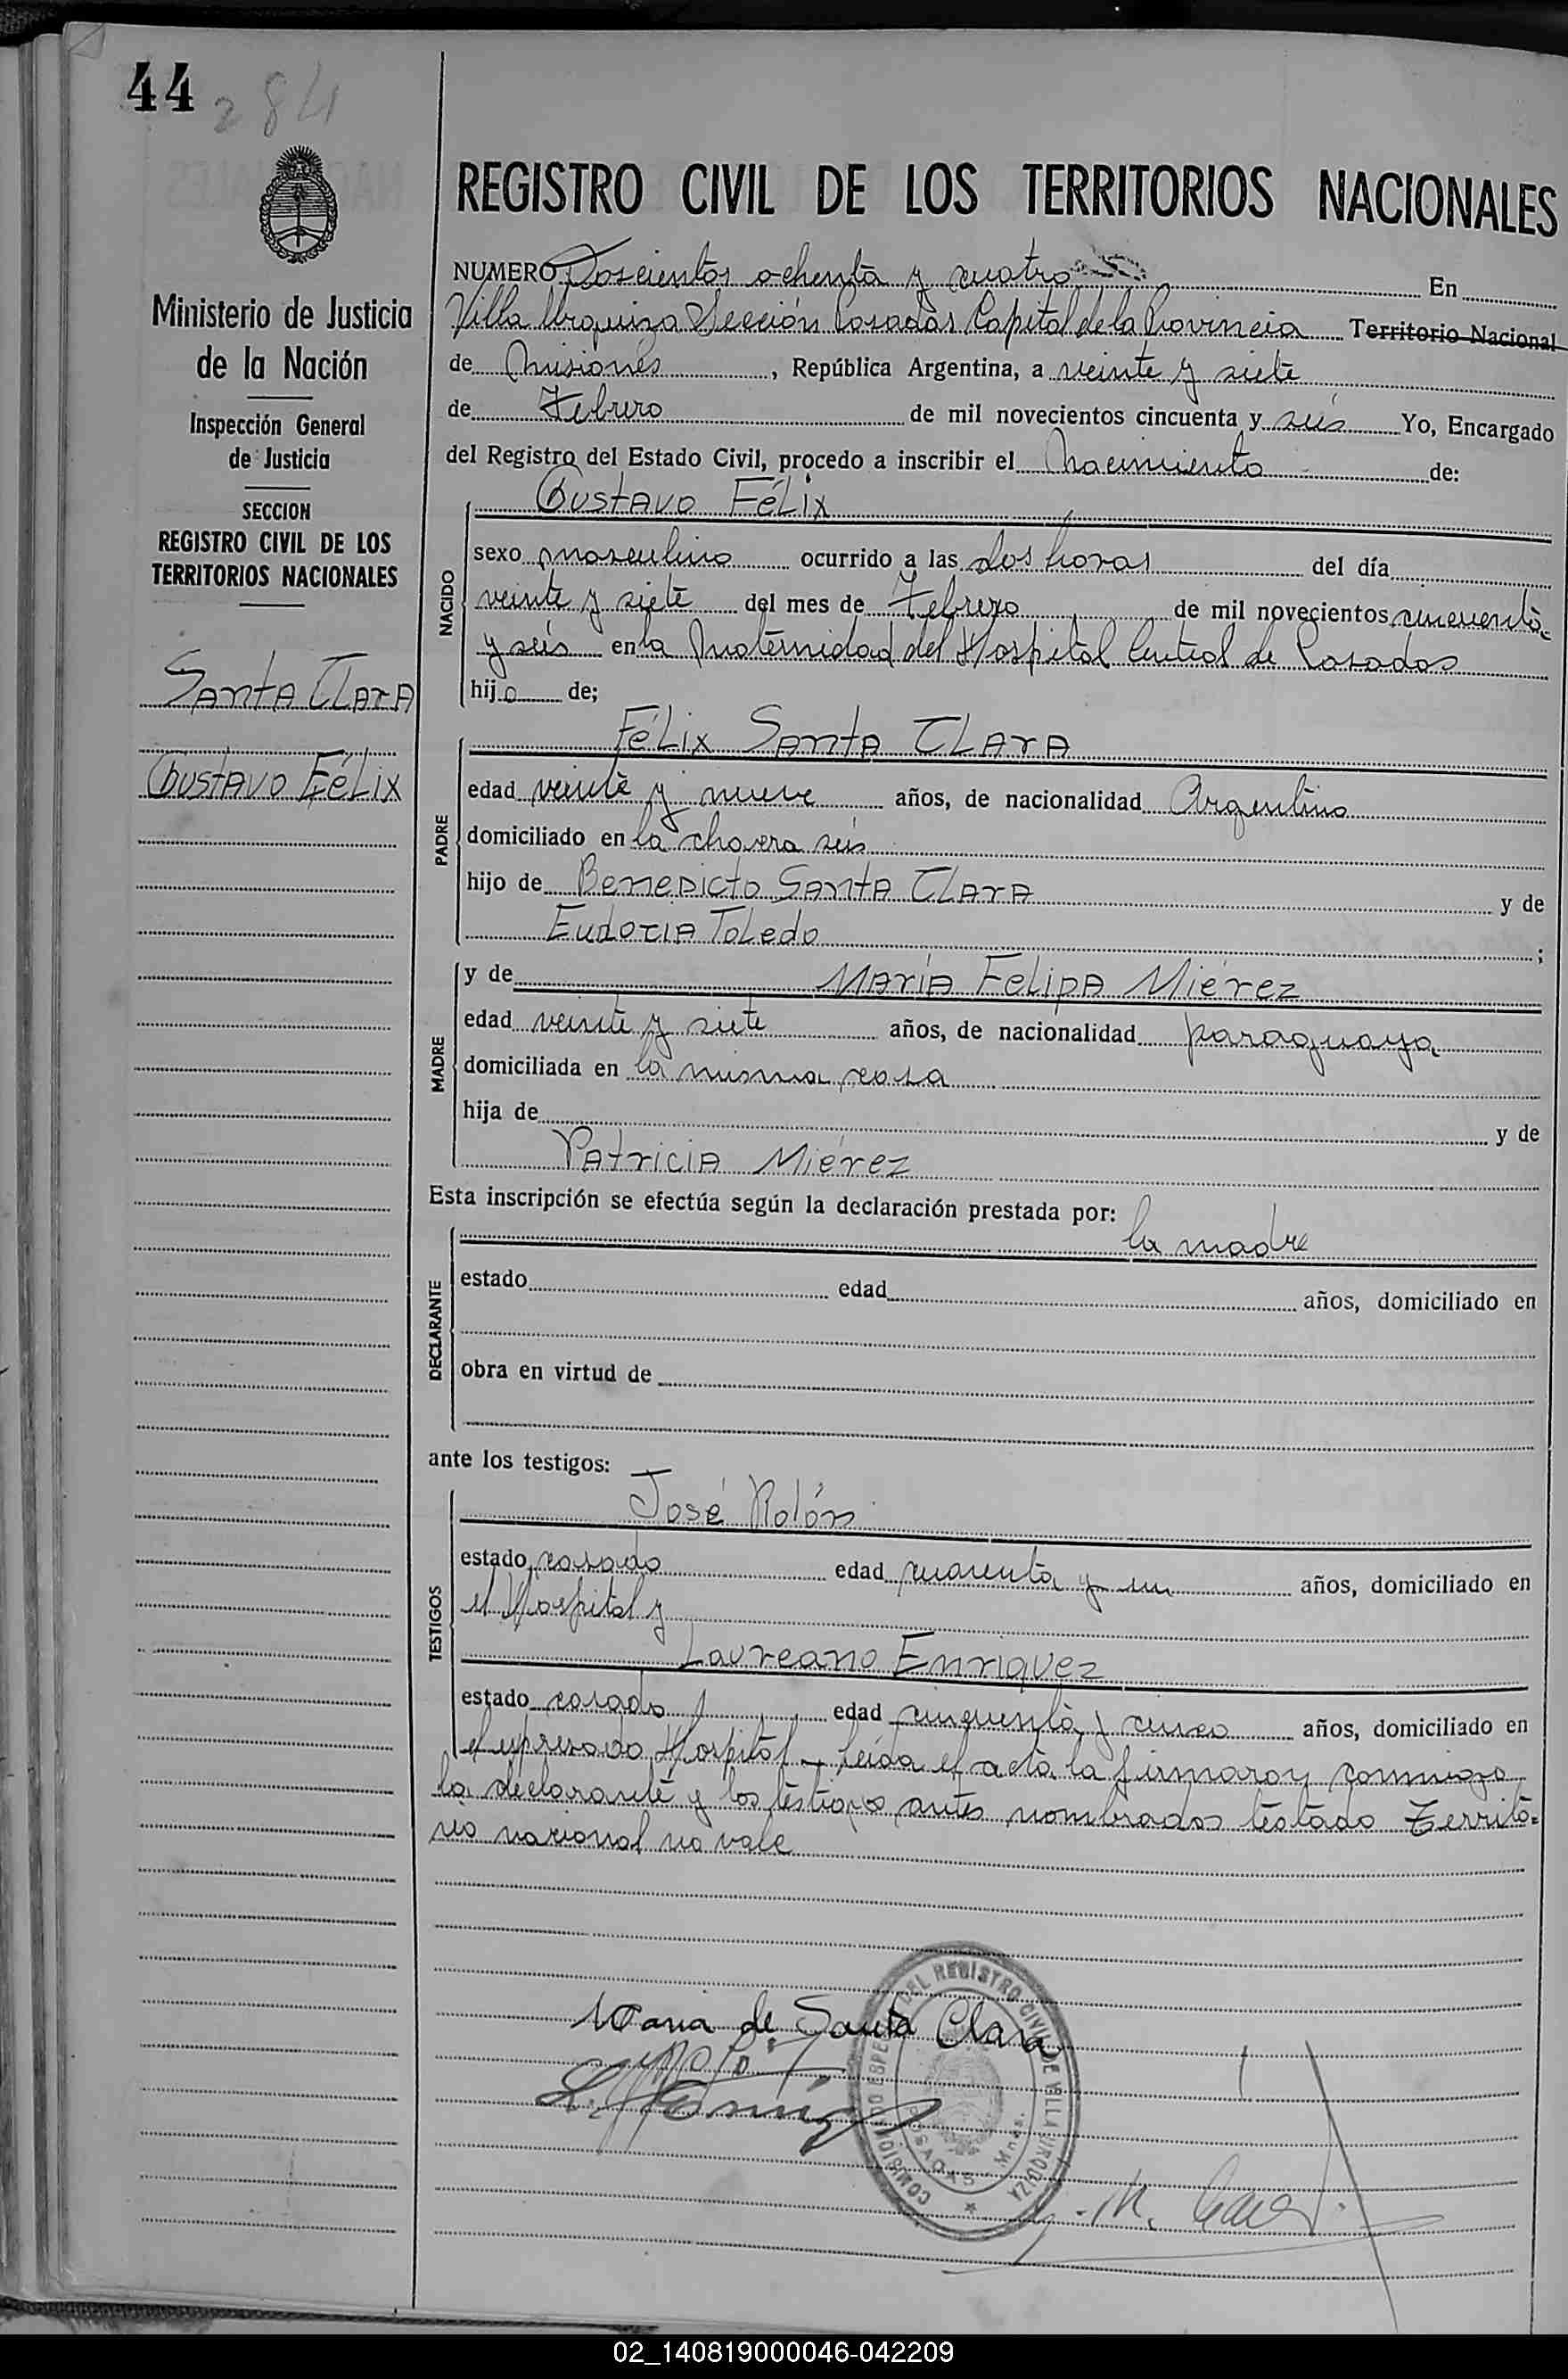 44 284
REGISTRO CIVIL DE LOS TERRITORIOS NACIONALES
Ministerio de Justicia
de la Nación
Inspección General
de Justicia
SECCION
REGISTRO CIVIL DE LOS
TERRITORIOS NACIONALES
Santa Clara
Gustavo Félix
NUMERO Doscientos ochenta y cuatro En
Villa Urquiza Sección Posadas Capital de la Provincia Territorio Nacional
de Misiones, República Argentina, a veinte y siete
de Febrero de mil novecientos cincuenta y seis Yo, Encargado
del Registro del Estado Civil, procedo a inscribir el Nacimiento de:
Gustavo Félix
NACIDO
sexo masculino ocurrido a las dos horas del día
veinte y siete del mes de Febrero de mil novecientos cincuenta
y seis en la Maternidad del Hospital Central de Posadas
hijo de;
Félix Santa Clara
PADRE
edad veinte y nueve años, de nacionalidad Argentino
domiciliado en la chacra seis
hijo de Benedicto Santa Clara y de
Eudocia Toledo ;
MADRE
y de María Felipa Miérez
edad veinte y siete años, de nacionalidad paraguaya
domiciliada en la misma casa
hija de y de
Patricia Miérez
Esta inscripción se efectúa según la declaración prestada por:
la madre
DECLARANTE
estado edad años, domiciliado en
obra en virtud de
ante los testigos:
José Rolón
TESTIGOS
estado casado edad cuarenta y un años, domiciliado en
el Hospital y
Laureano Enriquez
estado casado edad cinquenta y cinco años, domiciliado en
el expresado Hospital leida el acta la firmaron conmigo
la declarante y los testigos antes nombrados testado Territo=
rio nacional no vale
Maria de Santa Clara
DEL REGISTRO CIVIL DE VILLA URQUIZA
POSADAS Mnes.
02_140819000046-042209